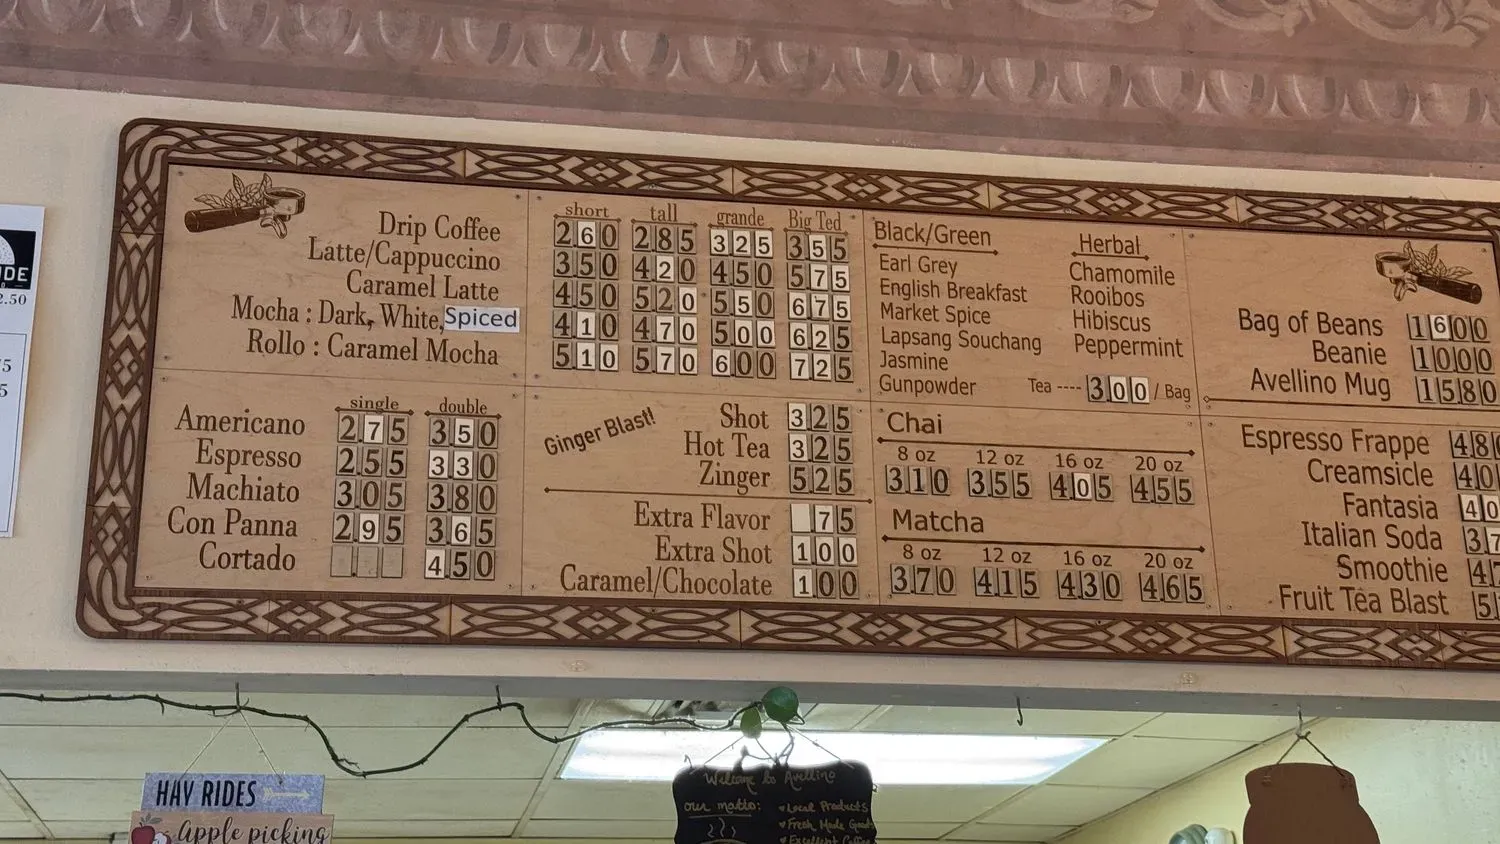 short tall grande Big Ted
Drip Coffee 260 285 325 355
Latte/Cappuccino 350 420 450 575
Caramel Latte 450 520 550 675
Mocha : Dark, White, Spiced 410 470 500 625
Rollo : Caramel Mocha 510 570 600 725
single double
Americano 275 350
Espresso 255 330
Machiato 305 380
Con Panna 295 365
Cortado 450
Ginger Blast!
Shot 325
Hot Tea 325
Zinger 525
Extra Flavor 75
Extra Shot 100
Caramel/Chocolate 100
Black/Green
Earl Grey
English Breakfast
Market Spice
Lapsang Souchang
Jasmine
Gunpowder
Herbal
Chamomile
Rooibos
Hibiscus
Peppermint
Tea ---- 300 / Bag
Chai
8 oz 12 oz 16 oz 20 oz
310 355 405 455
Matcha
8 oz 12 oz 16 oz 20 oz
370 415 430 465
Bag of Beans 1600
Beanie 1000
Avellino Mug 1580
Espresso Frappe 48
Creamsicle 40
Fantasia 40
Italian Soda 37
Smoothie 47
Fruit Tea Blast 5
IDE
2.50
5
5
HAY RIDES
Apple picking
Welcome to Avellino
our motto:
Local Products
Fresh Made Goods
Excellent Coffee